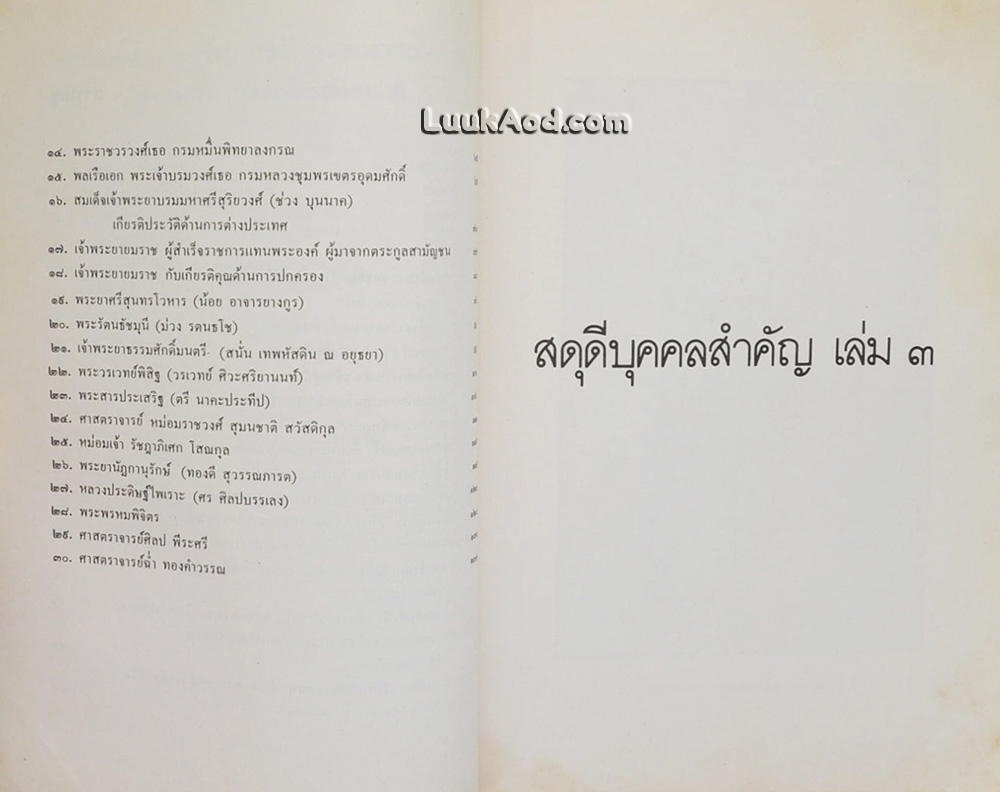 LuukAod.com
๑๔. พระราชวรวงศ์เธอ กรมหมื่นพิทยาลงกรณ
๑๕. พลเรือเอก พระเจ้าบรมวงศ์เธอ กรมหลวงชุมพรเขตรอุดมศักดิ์
๑๖. สมเด็จเจ้าพระยาบรมมหาศรีสุริยวงศ์ (ช่วง บุนนาค)
เกียรติประวัติด้านการต่างประเทศ
๑๗. เจ้าพระยายมราช ผู้สำเร็จราชการแทนพระองค์ ผู้มาจากตระกูลสามัญชน
๑๘. เจ้าพระยายมราช กับเกียรติคุณด้านการปกครอง
๑๙. พระยาศรีสุนทรโวหาร (น้อย อาจารยางกูร)
๒๐. พระรัตนธัชมุนี (ม่วง รตนธโช)
๒๑. เจ้าพระยาธรรมศักดิ์มนตรี (สนั่น เทพหัสดิน ณ อยุธยา)
๒๒. พระวรเวทย์พิสิฐ (วรเวทย์ ศิวะศริยานนท์)
๒๓. พระสารประเสริฐ (ตรี นาคะประทีป)
๒๔. ศาสตราจารย์ หม่อมราชวงศ์ สุมนชาติ สวัสดิกุล
๒๕. หม่อมเจ้า รัชฎาภิเศก โสณกุล
๒๖. พระยานัฏกานุรักษ์ (ทองดี สุวรรณภารต)
๒๗. หลวงประดิษฐ์ไพเราะ (ศร ศิลปบรรเลง)
๒๘. พระพรหมพิจิตร
๒๙. ศาสตราจารย์ศิลป พีระศรี
๓๐. ศาสตราจารย์ฉ่ำ ทองคำวรรณ
สดุดีบุคคลสำคัญ เล่ม ๓